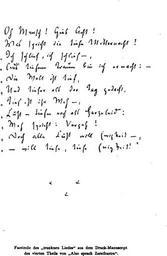 Oh Mensch! Gieb Acht!
Was spricht die tiefe Mitternacht?
Ich schlief, ich schlief –,
Aus tiefem Traum bin ich erwacht: –
Die Welt ist tief,
Und tiefer als der Tag gedacht.
Tief ist ihr Weh –,
Lust – tiefer noch als Herzeleid:
Weh spricht: Vergeh!
Doch alle Lust will Ewigkeit –,
– will tiefe, tiefe Ewigkeit!
Facsimile des „trunkenen Liedes“ aus dem Druck-Manuscript
des vierten Theils von "Also sprach Zarathustra".